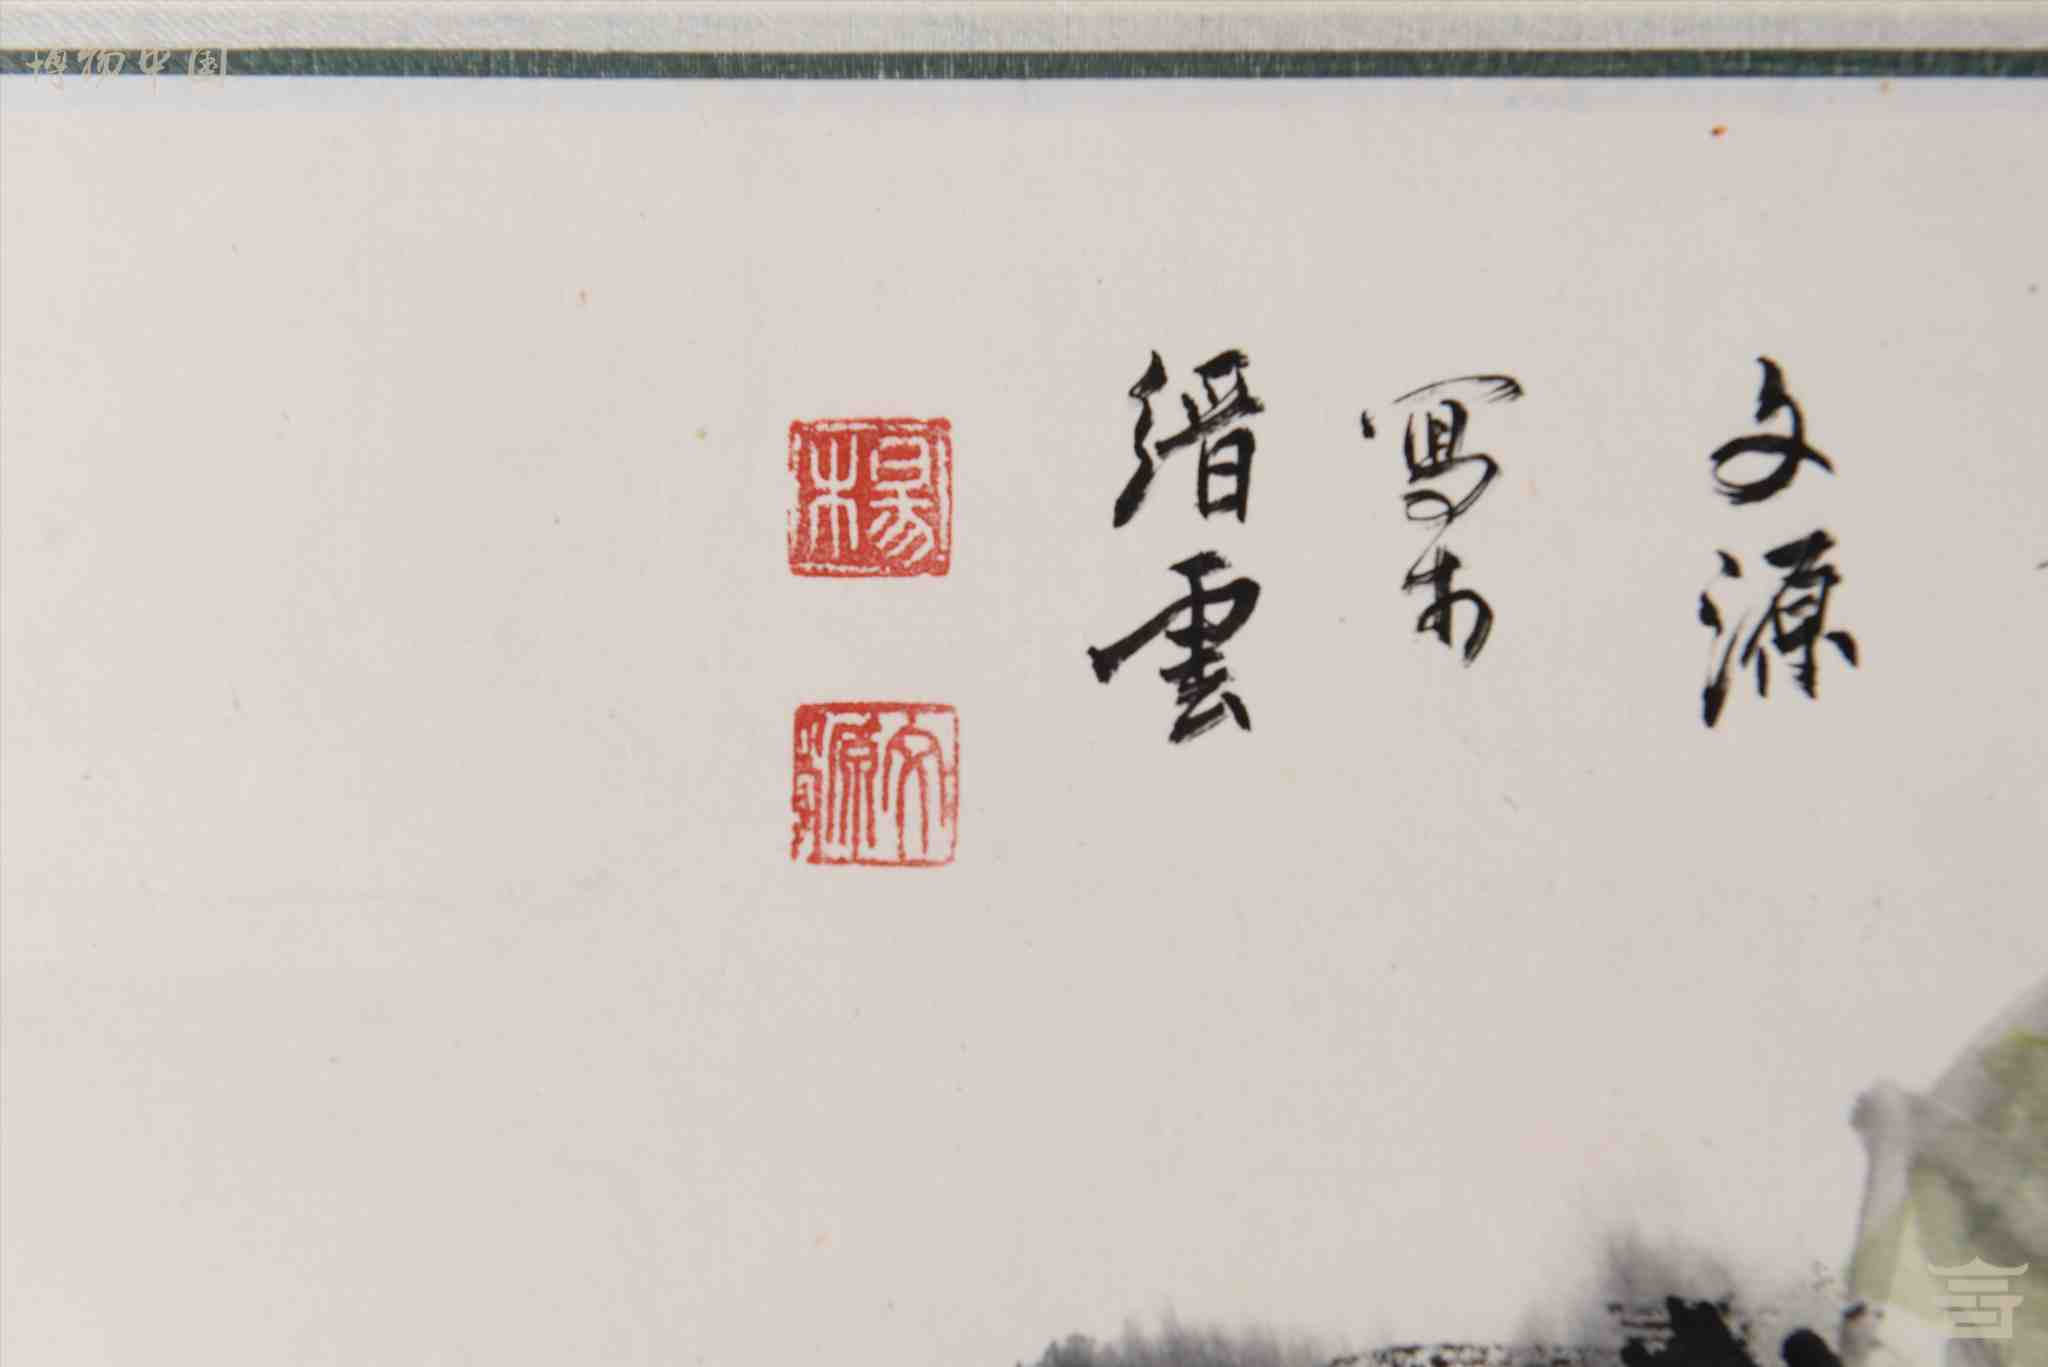 博物中国
文源
寫於
縉雲
楊
文源